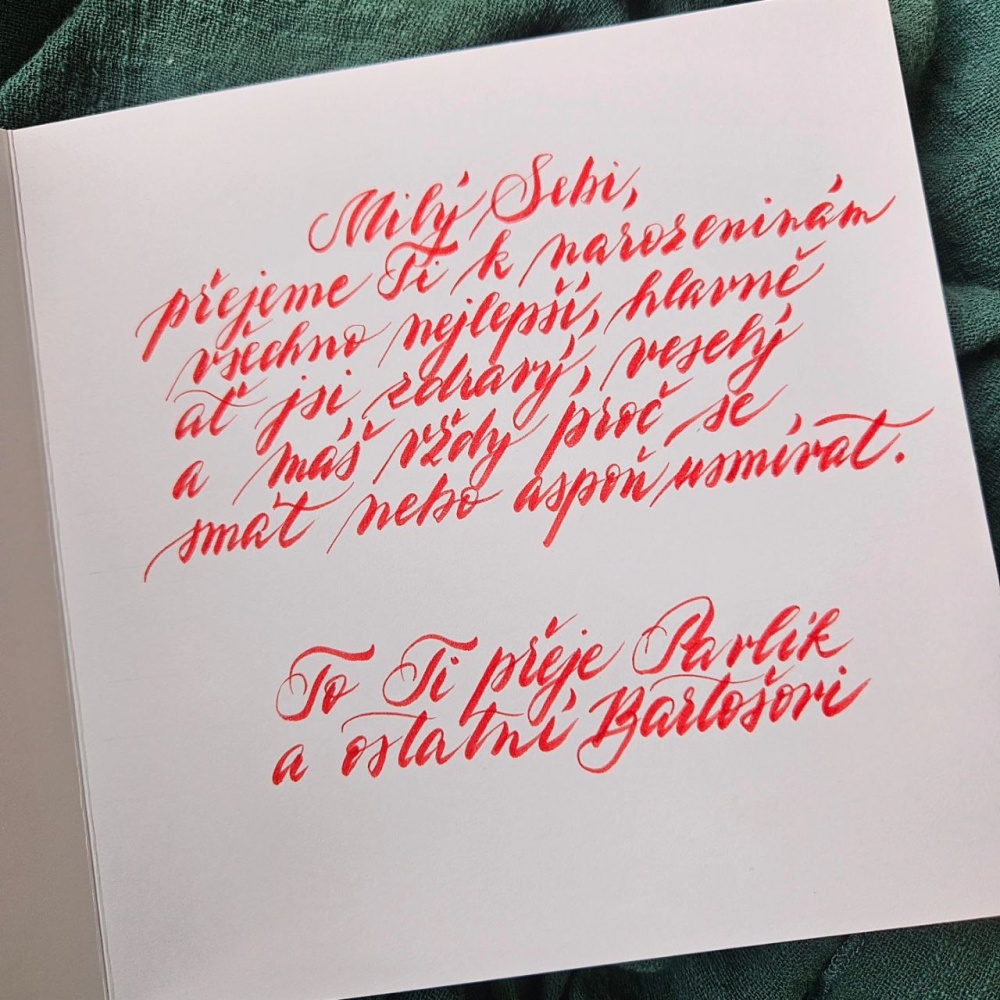 Milý Sebi,
přejeme Ti k narozeninám
všechno nejlepší, hlavně
ať jsi zdravý, veselý
a máš vždy proč se
smát nebo aspoň usmívat.
To Ti přeje Pavlík
a ostatní Bartošovi